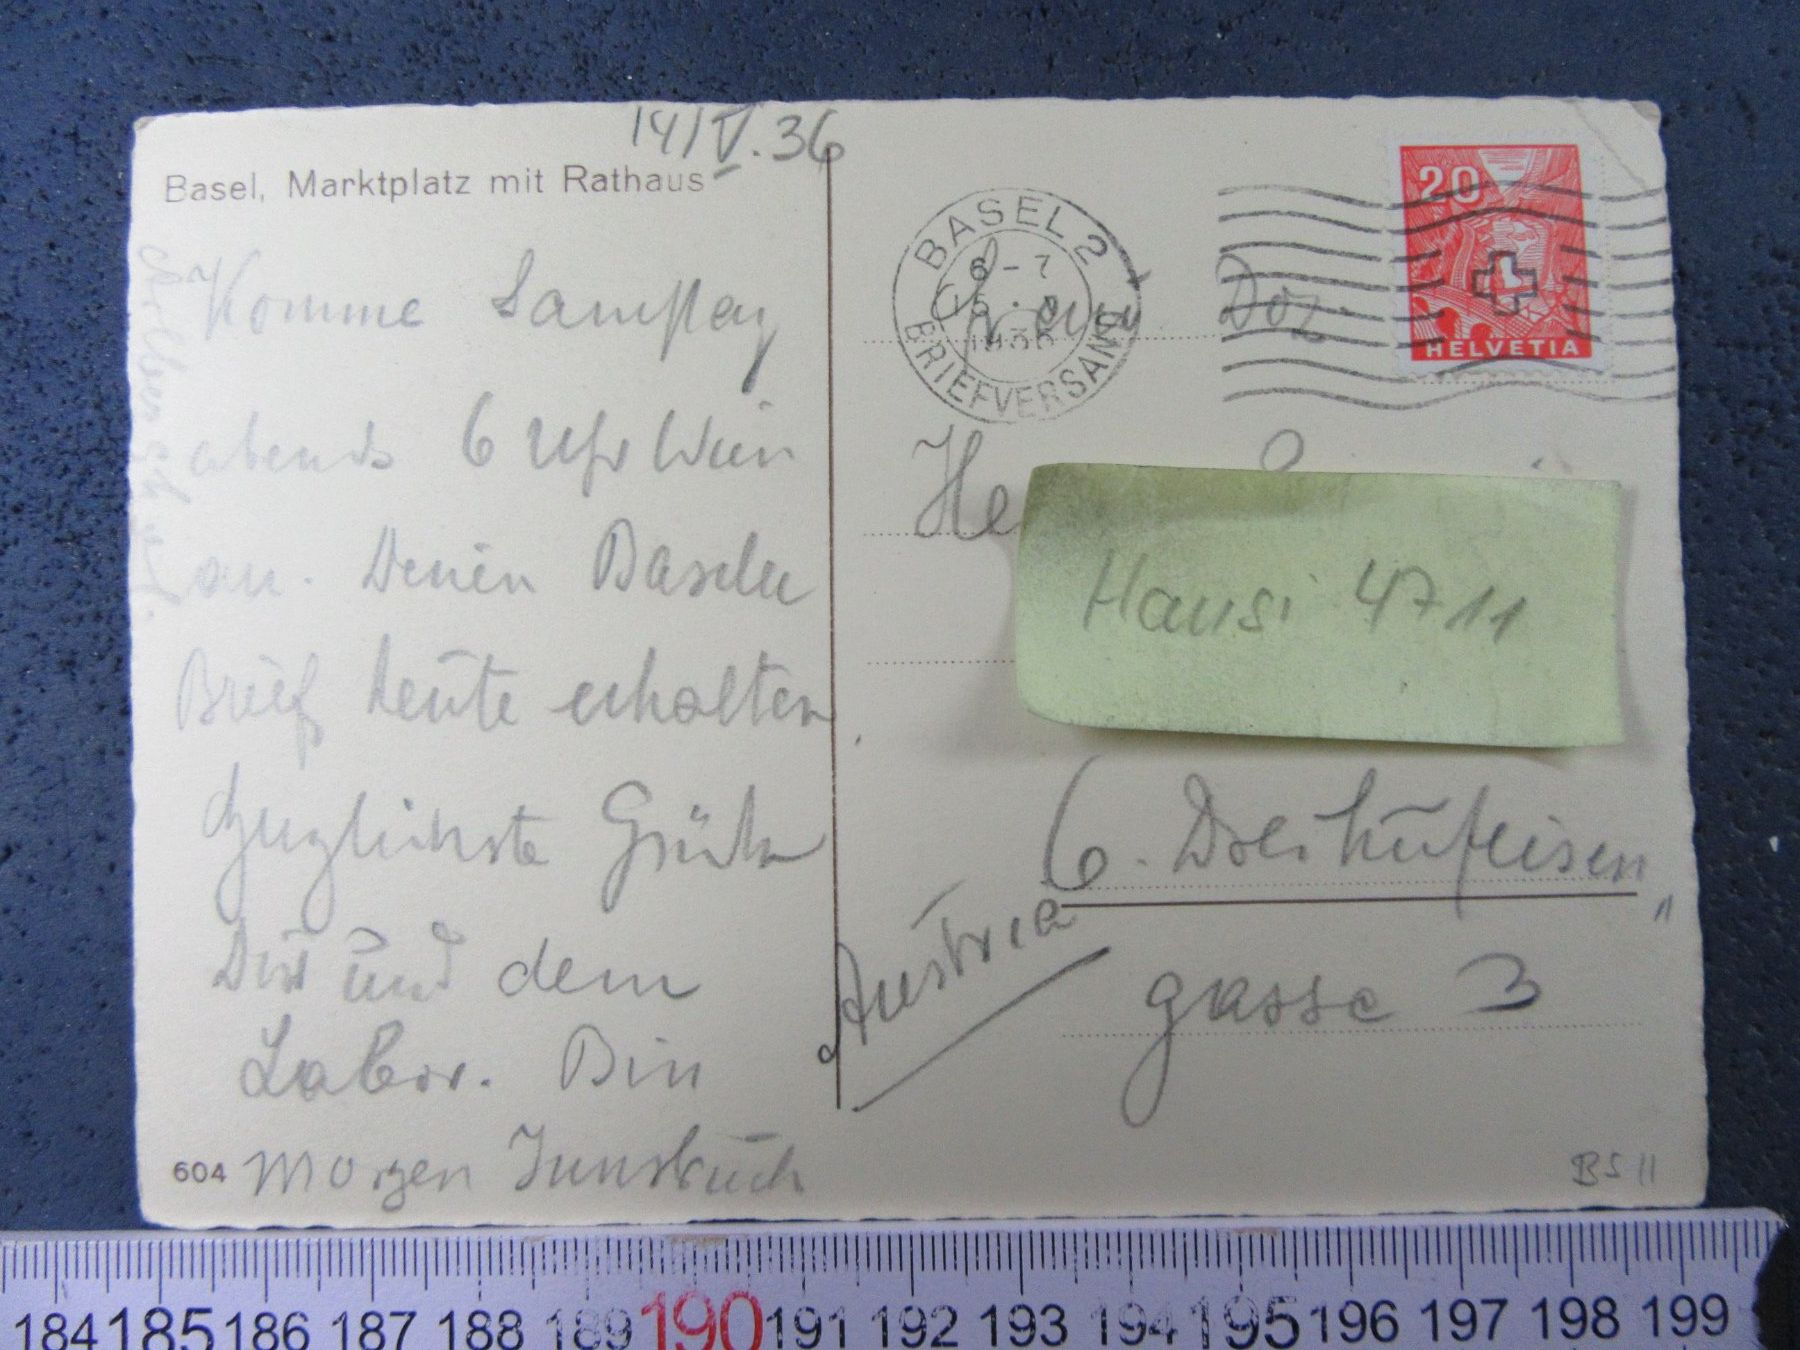 14/V.36
Basel, Marktplatz mit Rathaus
Komme Samstag
abends 6 Uhr Wien
an. Deinen Basler
Brief heute erhalten
herzlichste Grüße
Dir und dem
Labor. Bin
604 morgen Innsbruck
BASEL 2
6-7
15.V
1936
BRIEFVERSAND
20
HELVETIA
Doz.
He
Hansi 4711
6. Dreihufeisen
"
gasse 3
Austria
BS 11
184 185 186 187 188 189 190 191 192 193 194 195 196 197 198 199